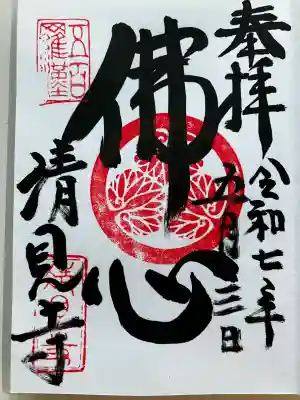 奉拝
令和七年
五月三日
佛心
五百
羅漢
清見寺